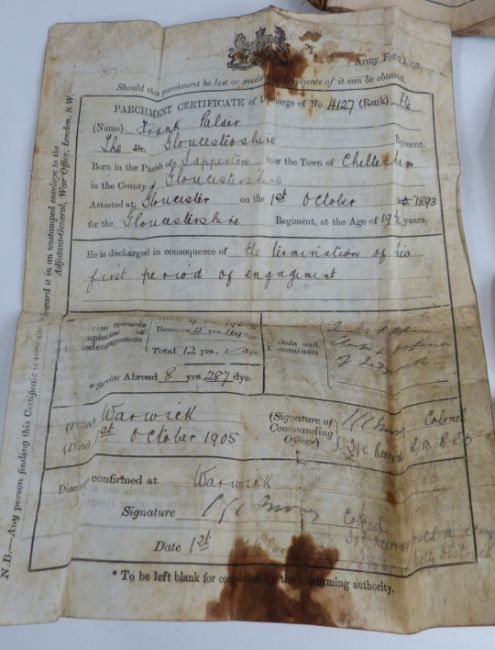 Army Form
Should this parchment be lost or mislaid no Duplicate of it can be obtained.
PARCHMENT CERTIFICATE of Discharge of No. 4127 (Rank) Pte
(Name) Frank Palser
The Gloucestershire Regiment.
Born in the Parish of Sapperton near the Town of Cheltenham
in the County of Gloucestershire
Attested at Gloucester on the 1st October 1893
for the Gloucestershire Regiment, at the Age of 19 years.
He is discharged in consequence of the termination of his
first period of engagement
Service towards
completion of
engagement
Reserve
Total 12 yrs. dys.
* Service Abroad 8 yrs. 287 dys.
Medals and
Decorations
(Place) Warwick
(Date) 1st October 1905
(Signature of
Commanding
Officer)
Colonel
I/c Records
Discharge confirmed at Warwick
Signature
Colonel
Date 1st
* To be left blank for completion by the confirming authority.
N.B.—Any person finding this Certificate is requested to forward it in an unstamped envelope to the
Adjutant-General, War Office, London, S.W.